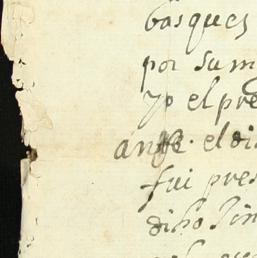 basques
por su m
yo el pre
ante. el di
fui pres
diho sin